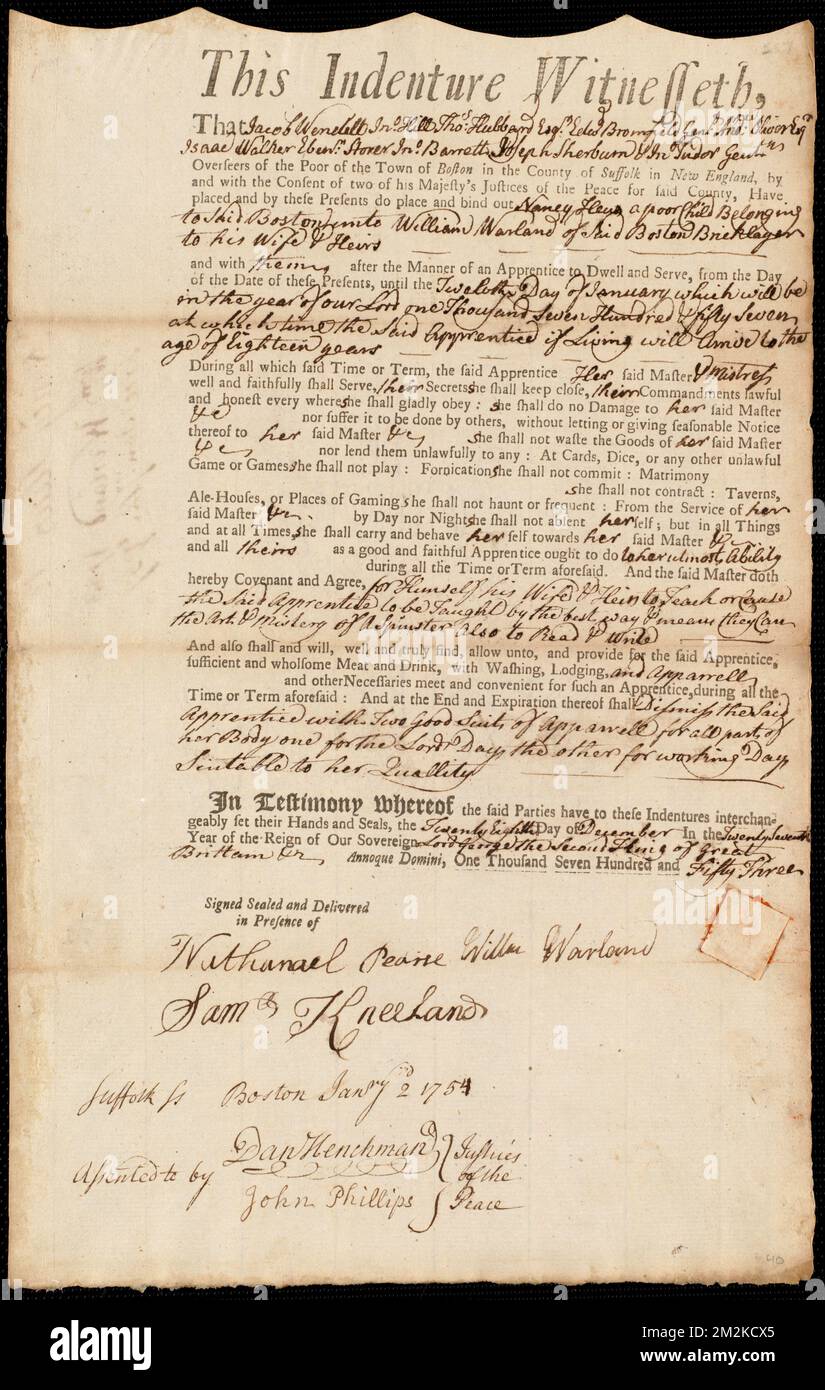 This Indenture Witnesseth,
That Jacob Wendell Jnº Hill Thoˢ Hubbard Esqʳˢ Edwᵈ Bromfield Gentⁿ Thoˢ Esqʳ
Isaac Walker Ebenʳ Storer Jnº Barrett Joseph Sherburn & Jnº Tudor Gentⁿ
Overseers of the Poor of the Town of Boston in the County of Suffolk in New England, by
and with the Consent of two of his Majesty's Justices of the Peace for said County, Have
placed and by these Presents do place and bind out Nancy a poor Child Belonging
to Said Boston unto William Warland of Said Boston Bricklayer
to his Wife & Heirs
and with them after the Manner of an Apprentice to Dwell and Serve, from the Day
of the Date of these Presents, until the Twelveth Day of January which will be
in the year of our Lord one Thousand Seven Hundred & fifty Seven
at which time the Said Apprentice if Living will Arrive to the
age of Eighteen years
During all which said Time or Term, the said Apprentice Her said Master & Mistress
well and faithfully shall Serve, their Secrets she shall keep close, their Commandments lawful
and honest every where she shall gladly obey : she shall do no Damage to her said Master
&c nor suffer it to be done by others, without letting or giving seasonable Notice
thereof to her said Master &c she shall not waste the Goods of her said Master
&c nor lend them unlawfully to any : At Cards, Dice, or any other unlawful
Game or Games she shall not play : Fornication she shall not commit : Matrimony
she shall not contract : Taverns,
Ale-Houses, or Places of Gaming she shall not haunt or frequent : From the Service of her
said Master &c by Day nor Night she shall not absent her self; but in all Things
and at all Times she shall carry and behave her self towards her said Master &c
and all theirs as a good and faithful Apprentice ought to do to her utmost Ability
during all the Time or Term aforesaid. And the said Master doth
hereby Covenant and Agree, for Himself his Wife & Heirs to Teach or Cause
the Said Apprentice to be Taught by the best way & means they Can
the Art & Mistery of a Spinster Also to Read & Write
And also shall and will, well and truly find, allow unto, and provide for the said Apprentice,
sufficient and wholsome Meat and Drink, with Washing, Lodging, and Apparrell
and other Necessaries meet and convenient for such an Apprentice, during all the
Time or Term aforesaid : And at the End and Expiration thereof shall Dismiss the Said
Apprentice with Two Good Suits of Apparrell for all parts of
her Body one for the Lords Days the other for working Days
Suitable to her Quallity
In Testimony whereof the said Parties have to these Indentures interchan-
geably set their Hands and Seals, the Twenty Eighth Day of December In the Twenty Seventh
Year of the Reign of Our Sovereign Lord George the Second King of Great
Brittain &c Annoque Domini, One Thousand Seven Hundred and Fifty Three
Signed Sealed and Delivered
in Presence of
Nathanael Pearse Willm Warland
Samˡˡ Kneeland
Suffolk ss Boston Janʳʸ 2ᵈ 1754
Danˡ Henchman Justices
Assented to by of the
John Phillips Peace
40
alamy
alamy
Image ID: 2M2KCX5
www.alamy.com